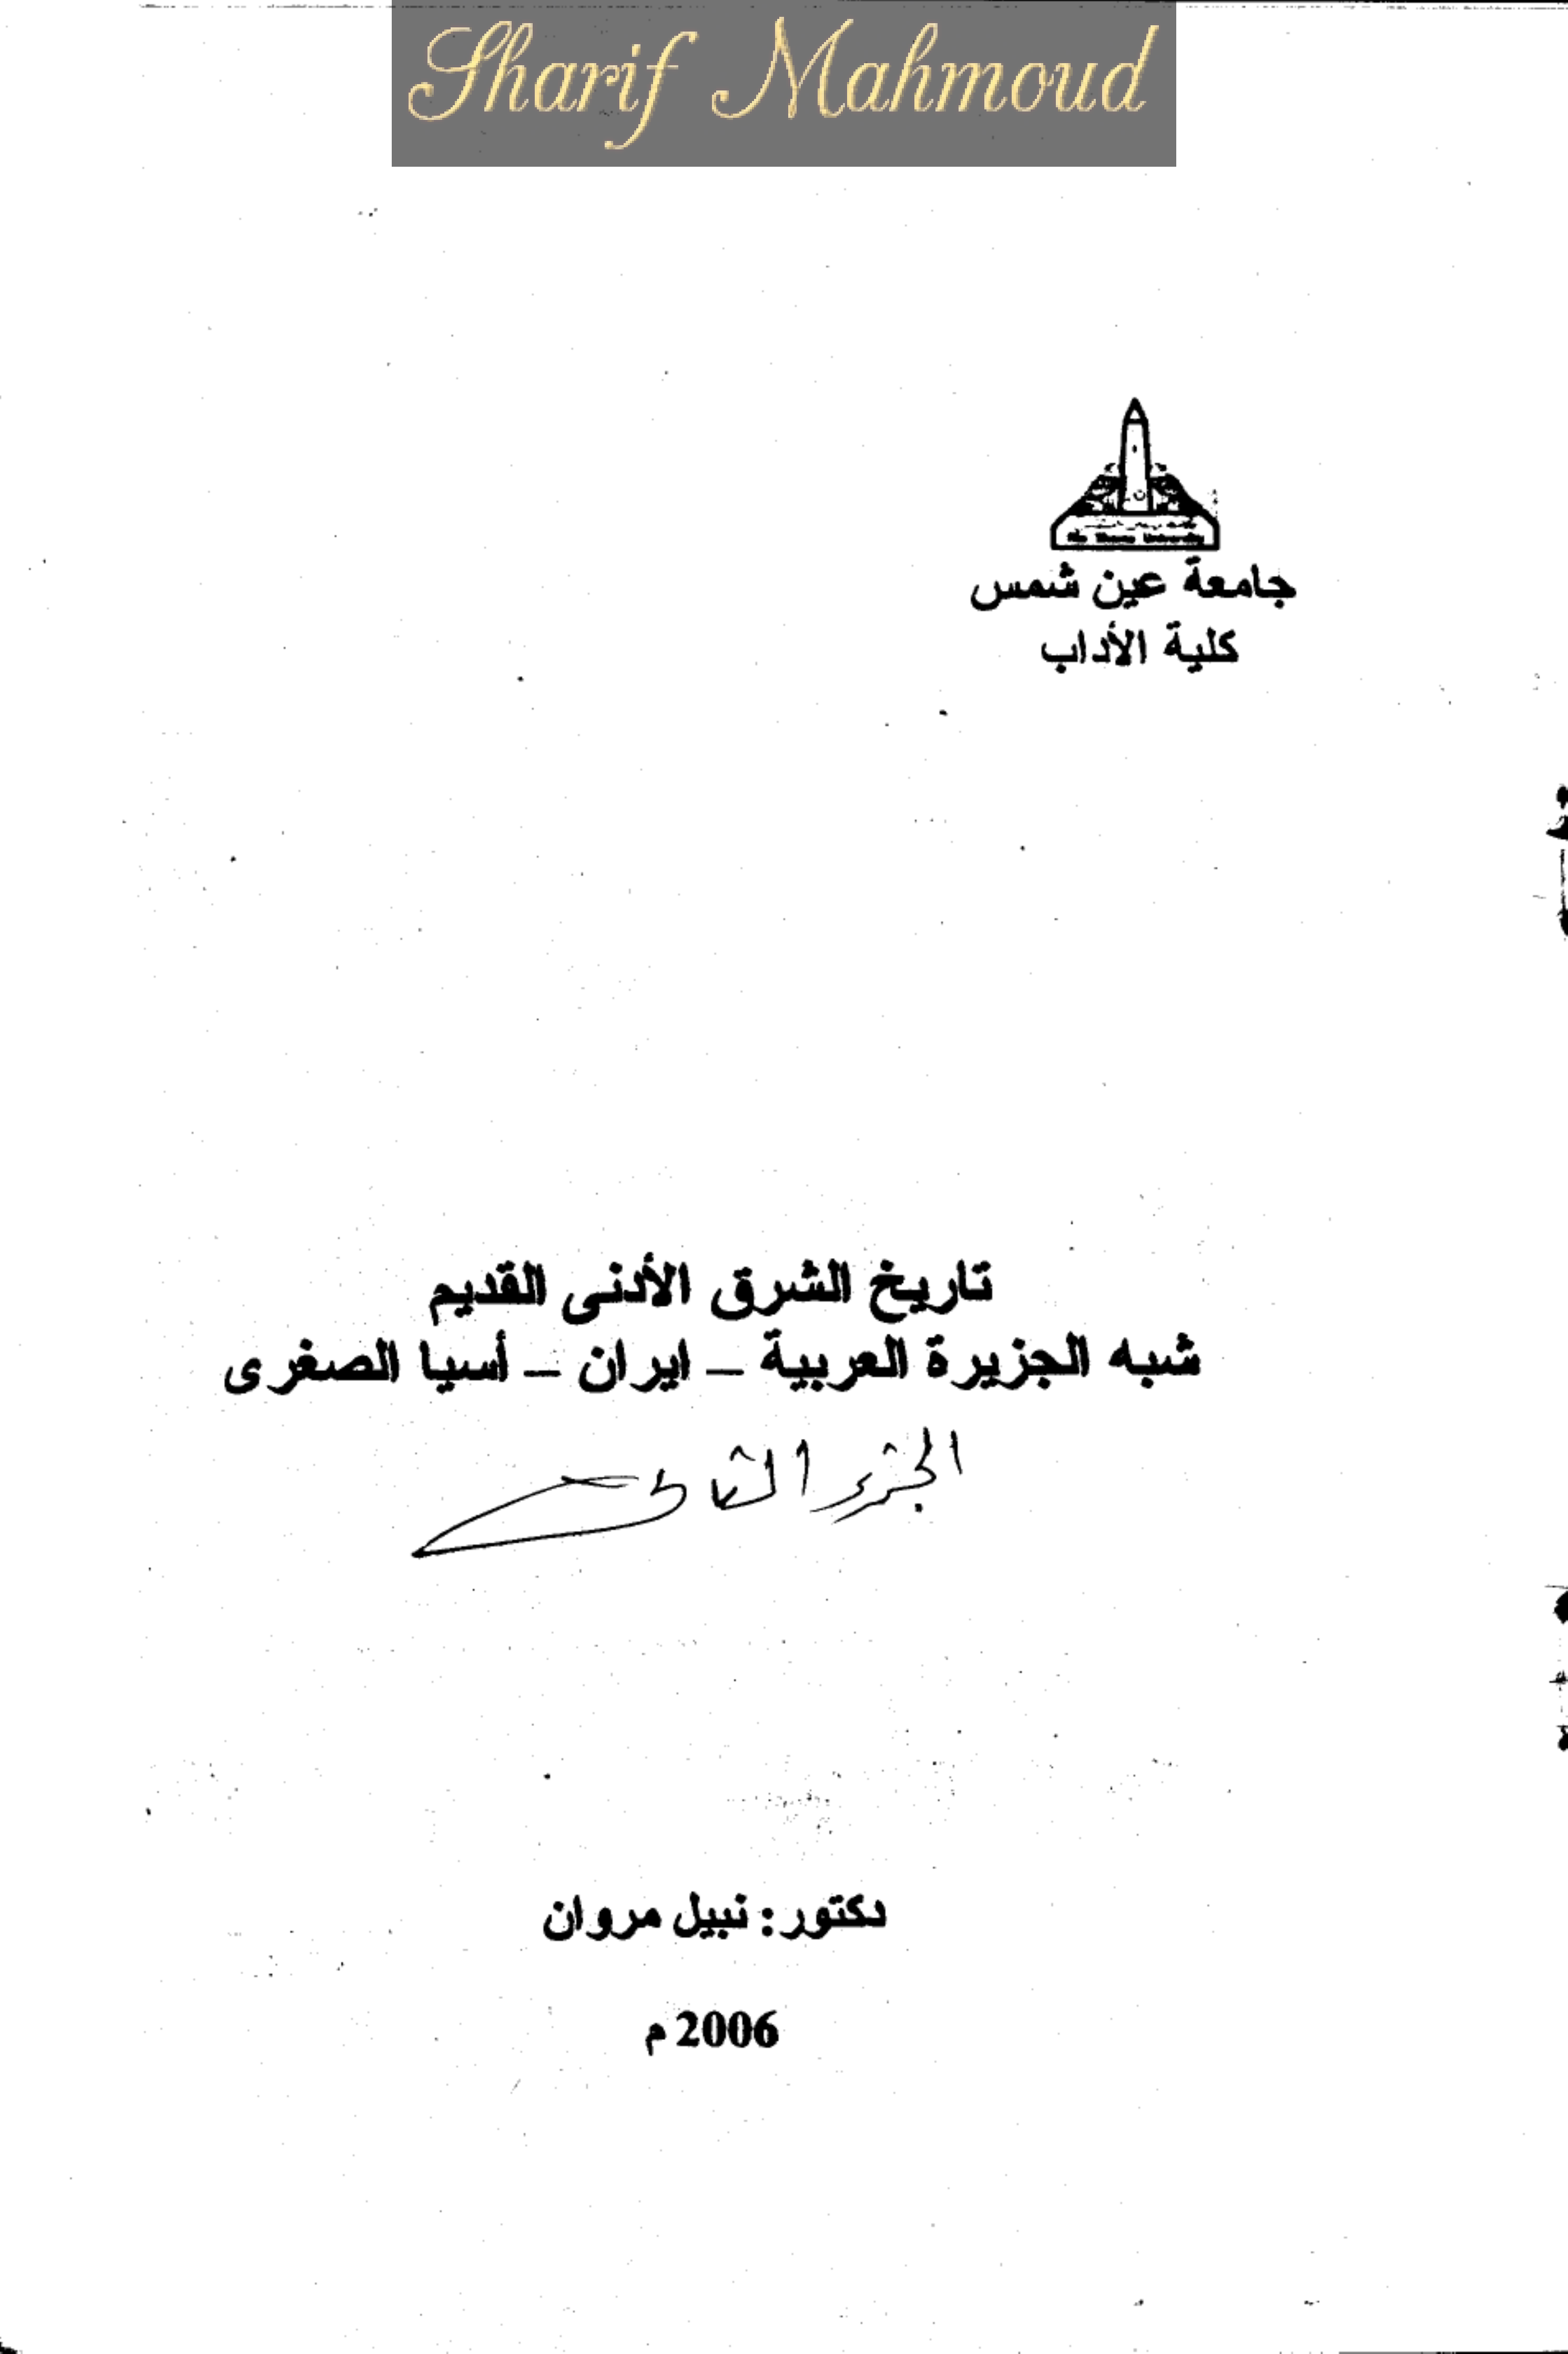 Sharif Mahmoud
جامعة عين شمس
كلية الأداب
تاريخ الشرق الأدنى القديم
شبه الجزيرة العربية – ايران – أسيا الصغرى
الجزء الثانى
دكتور: نبيل مروان
2006 م